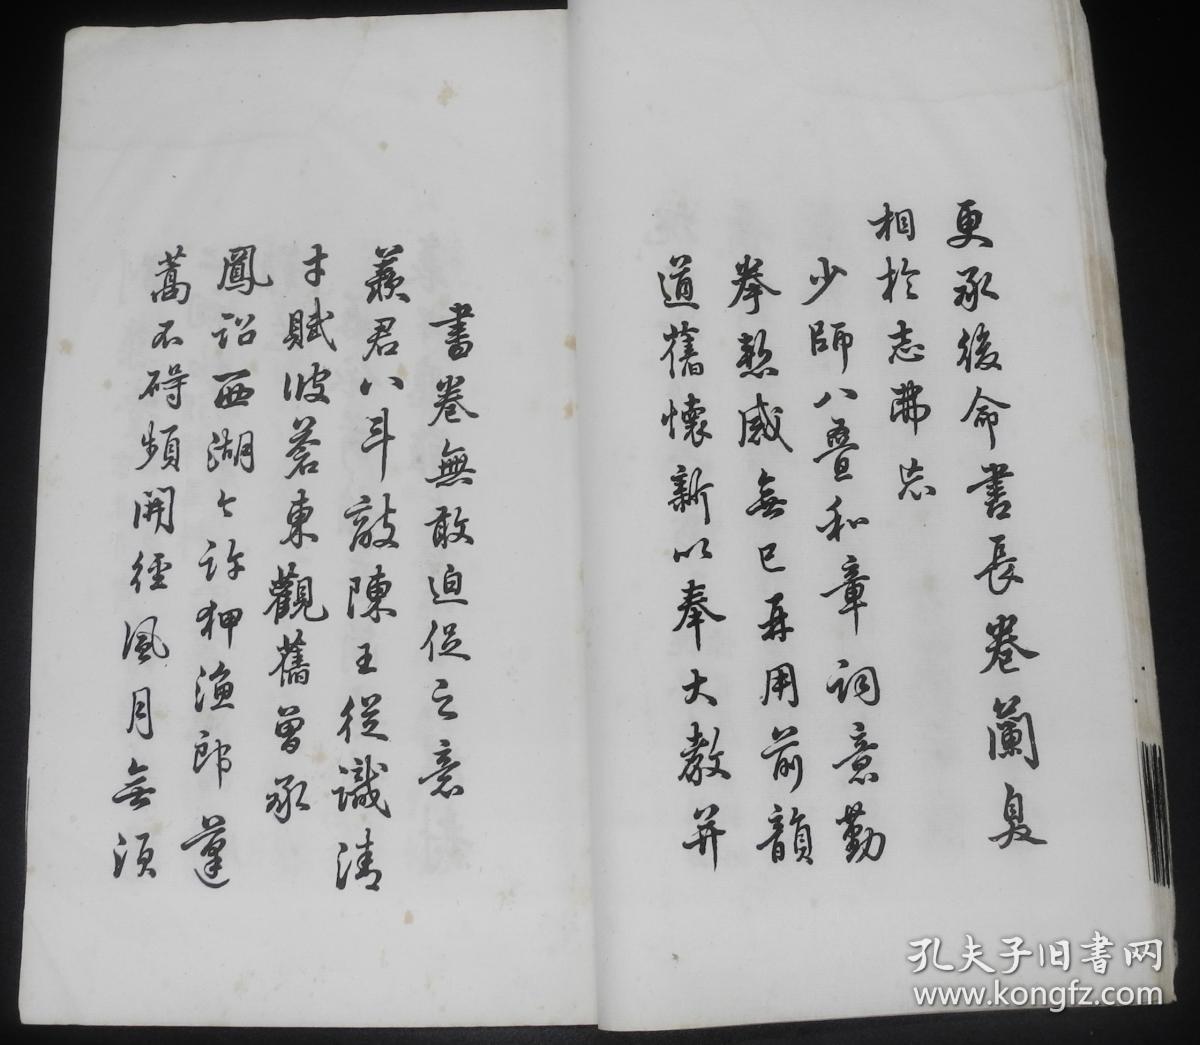 更承後命書長卷蘭臭
相於志弗忘
少師八疊和章詞意勤
拳愁感無已再用前韻
道舊懷新以奉大教并
書卷無敢迫促之意
羨君八斗敵陳王從識清
才賦彼蒼東觀舊曾承
鳳詔西湖今許狎漁郎蓬
蒿不碍頻開徑風月無須
孔夫子旧书网
www.kongfz.com